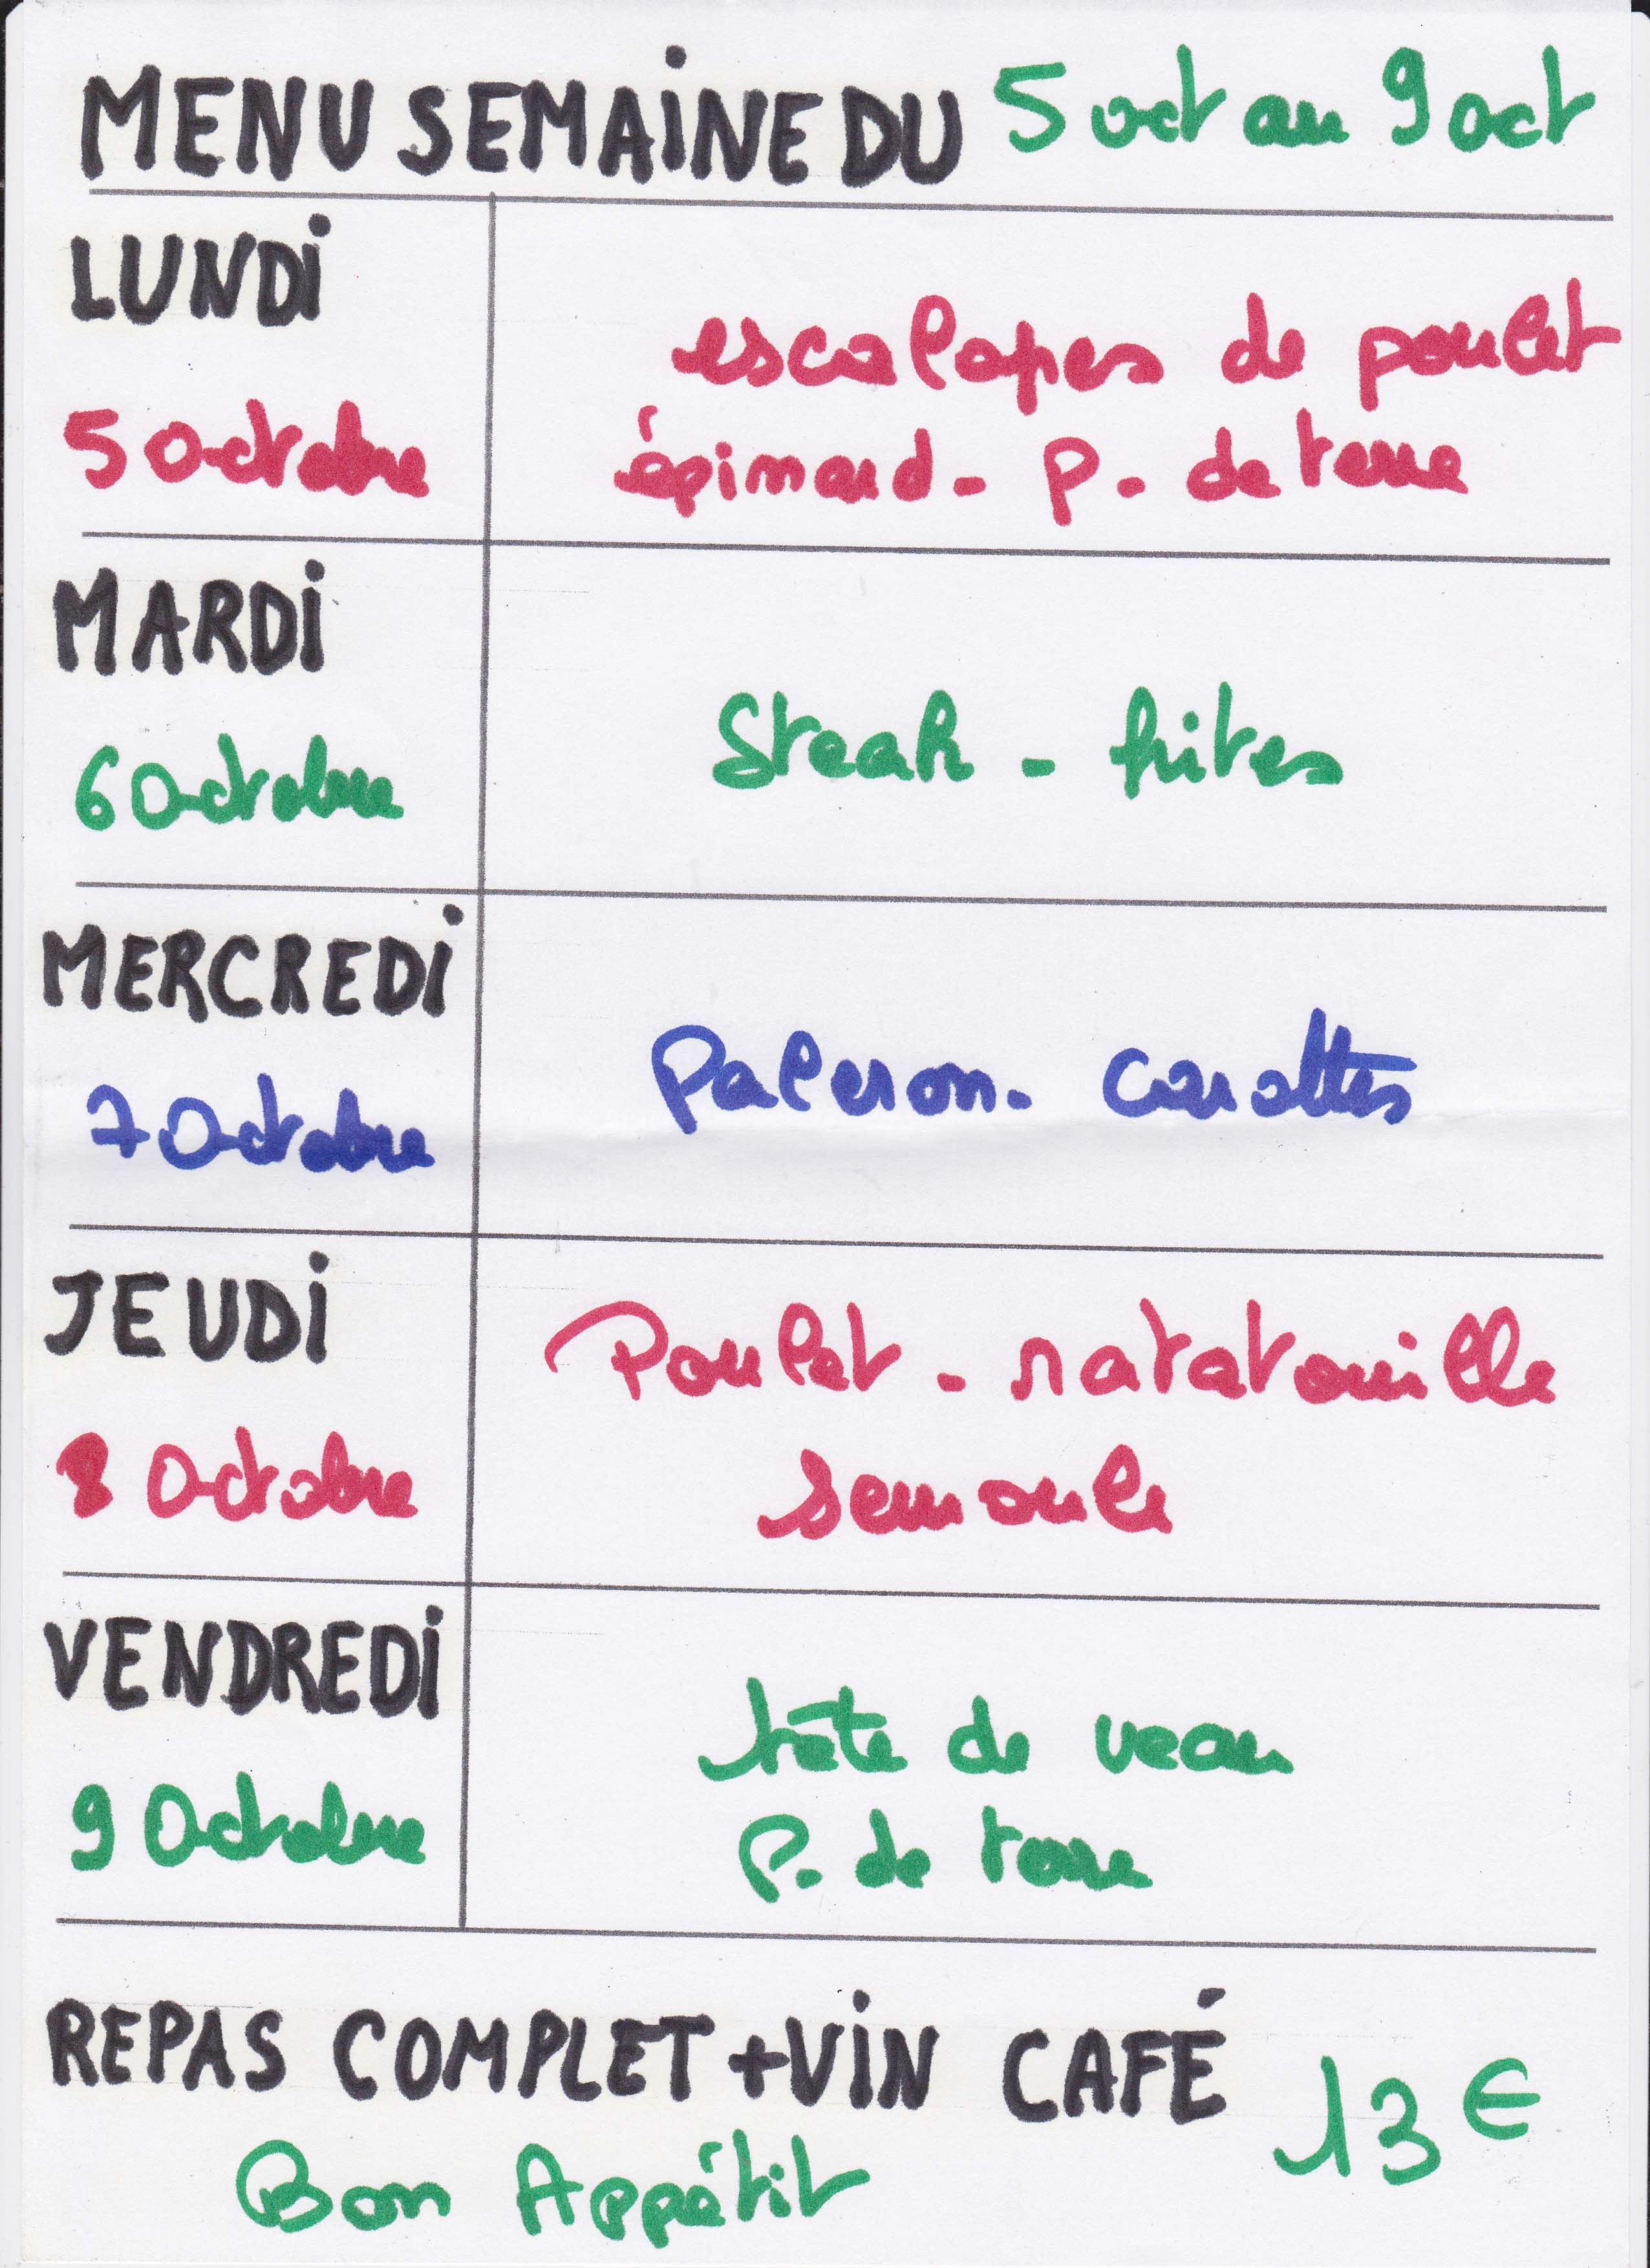 MENU SEMAINE DU 5 oct au 9 oct
LUNDI
escalopes de poulet
5 Octobre
épinard - P. de terre
MARDI
Steak - frites
6 Octobre
MERCREDI
Paleron - carottes
7 Octobre
JEUDI
Poulet - ratatouille
8 Octobre
semoule
VENDREDI
tête de veau
9 Octobre
P. de terre
REPAS COMPLET + VIN CAFÉ 13 €
Bon Appétit